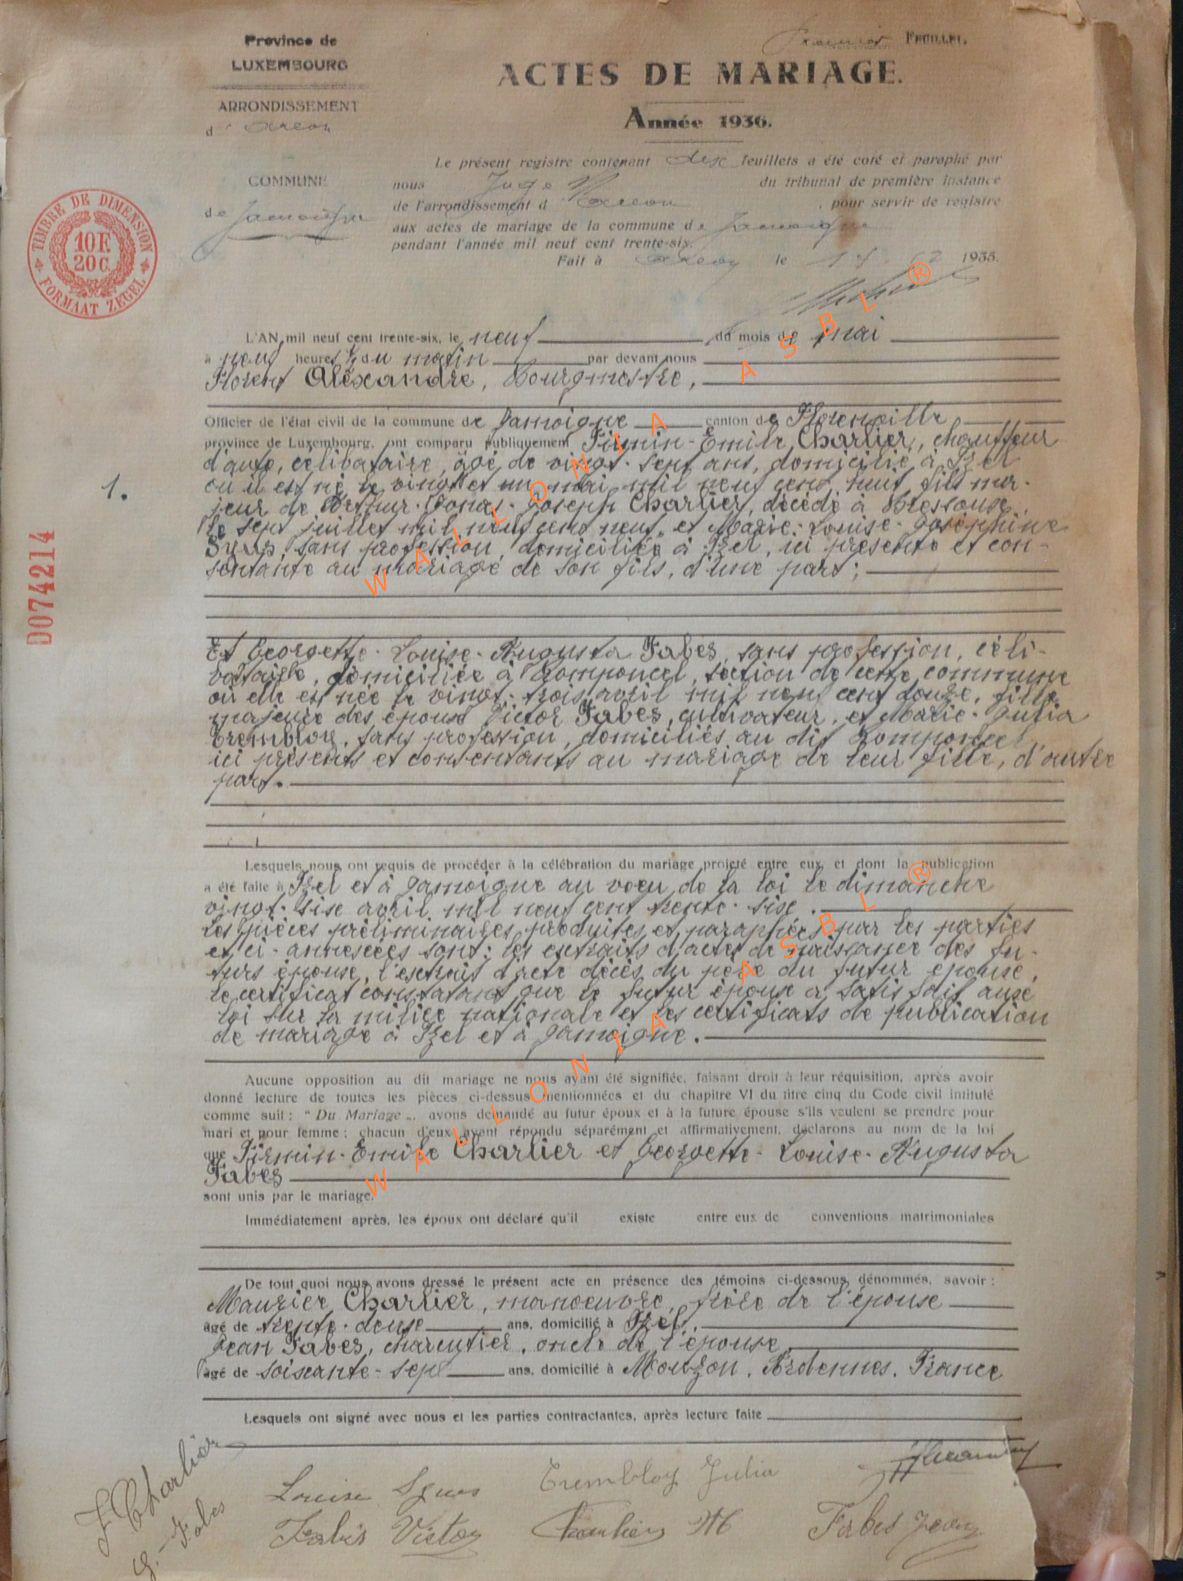 Province de
LUXEMBOURG
ARRONDISSEMENT
d'Arlon
COMMUNE
de Jamoigne
Premier FEUILLET.
ACTES DE MARIAGE.
Année 1936.
Le présent registre contenant dix feuillets a été coté et paraphé par
nous Juge du tribunal de première instance
de l'arrondissement d'Arlon, pour servir de registre
aux actes de mariage de la commune de Jamoigne
pendant l'année mil neuf cent trente-six.
Fait à Arlon le 17 12 1935.
TIMBRE DE DIMENSION
10 F
20 C.
FORMAAT ZEGEL
D074214
1.
L'AN mil neuf cent trente-six, le neuf du mois de mai
à neuf heures ½ du matin par devant nous
Florent Alexandre, Bourgmestre,
Officier de l'état civil de la commune de Jamoigne canton de Florenville
province de Luxembourg, ont comparu publiquement Firmin-Emile Charlier, chauffeur
d'auto, célibataire, âgé de vingt-sept ans, domicilié à Izel
où il est né le vingt et un mai mil neuf cent huit, fils ma-
jeur de Arthur-Joseph Charlier, décédé à
le sept juillet mil neuf cent neuf, et Marie-Louise-Joséphine
Syus, sans profession, domiciliée à Izel, ici présente et con-
sentante au mariage de son fils, d'une part;
Et Georgette-Louise-Augusta Fabes, sans profession, céli-
bataire, domiciliée à Romponcel, section de cette commune
où elle est née le vingt-trois avril mil neuf cent douze, fille
majeure des époux Victor Fabes, cultivateur, et Marie-Julia
Trembloy, sans profession, domiciliés au dit Romponcel,
ici présents et consentants au mariage de leur fille, d'autre
part.
Lesquels nous ont requis de procéder à la célébration du mariage projeté entre eux et dont la publication
a été faite à Izel et à Jamoigne au voeu de la loi le dimanche
vingt-six avril mil neuf cent trente-six.
Les pièces préliminaires produites et paraphées par les parties
et ci-annexées sont: les extraits d'actes de naissance des fu-
turs époux, l'extrait d'acte décès du père du futur époux,
le certificat constatant que le futur époux a satisfait aux
loi sur la milice nationale et les certificats de publication
de mariage à Izel et à Jamoigne.
Aucune opposition au dit mariage ne nous ayant été signifiée, faisant droit à leur réquisition, après avoir
donné lecture de toutes les pièces ci-dessus mentionnées et du chapitre VI du titre cinq du Code civil intitulé
comme suit : " Du Mariage „, avons demandé au futur époux et à la future épouse s'ils veulent se prendre pour
mari et pour femme ; chacun d'eux ayant répondu séparément et affirmativement, déclarons au nom de la loi
que Firmin-Emile Charlier et Georgette-Louise-Augusta
Fabes
sont unis par le mariage.
Immédiatement après, les époux ont déclaré qu'il existe entre eux de conventions matrimoniales
De tout quoi nous avons dressé le présent acte en présence des témoins ci-dessous dénommés, savoir :
Maurice Charlier, manoeuvre, frère de l'époux
âgé de trente-deux ans, domicilié à Izel,
Jean Fabes, charcutier, oncle de l'épouse,
âgé de soixante-sept ans, domicilié à Mouzon, Ardennes, France
Lesquels ont signé avec nous et les parties contractantes, après lecture faite
F Charlier
G. Fabes
Louise Syus
Trembloy Julia
Fabes Victor
Charlier M
Fabes Jean
WALLONIA ASBL ®
WALLONIA ASBL ®